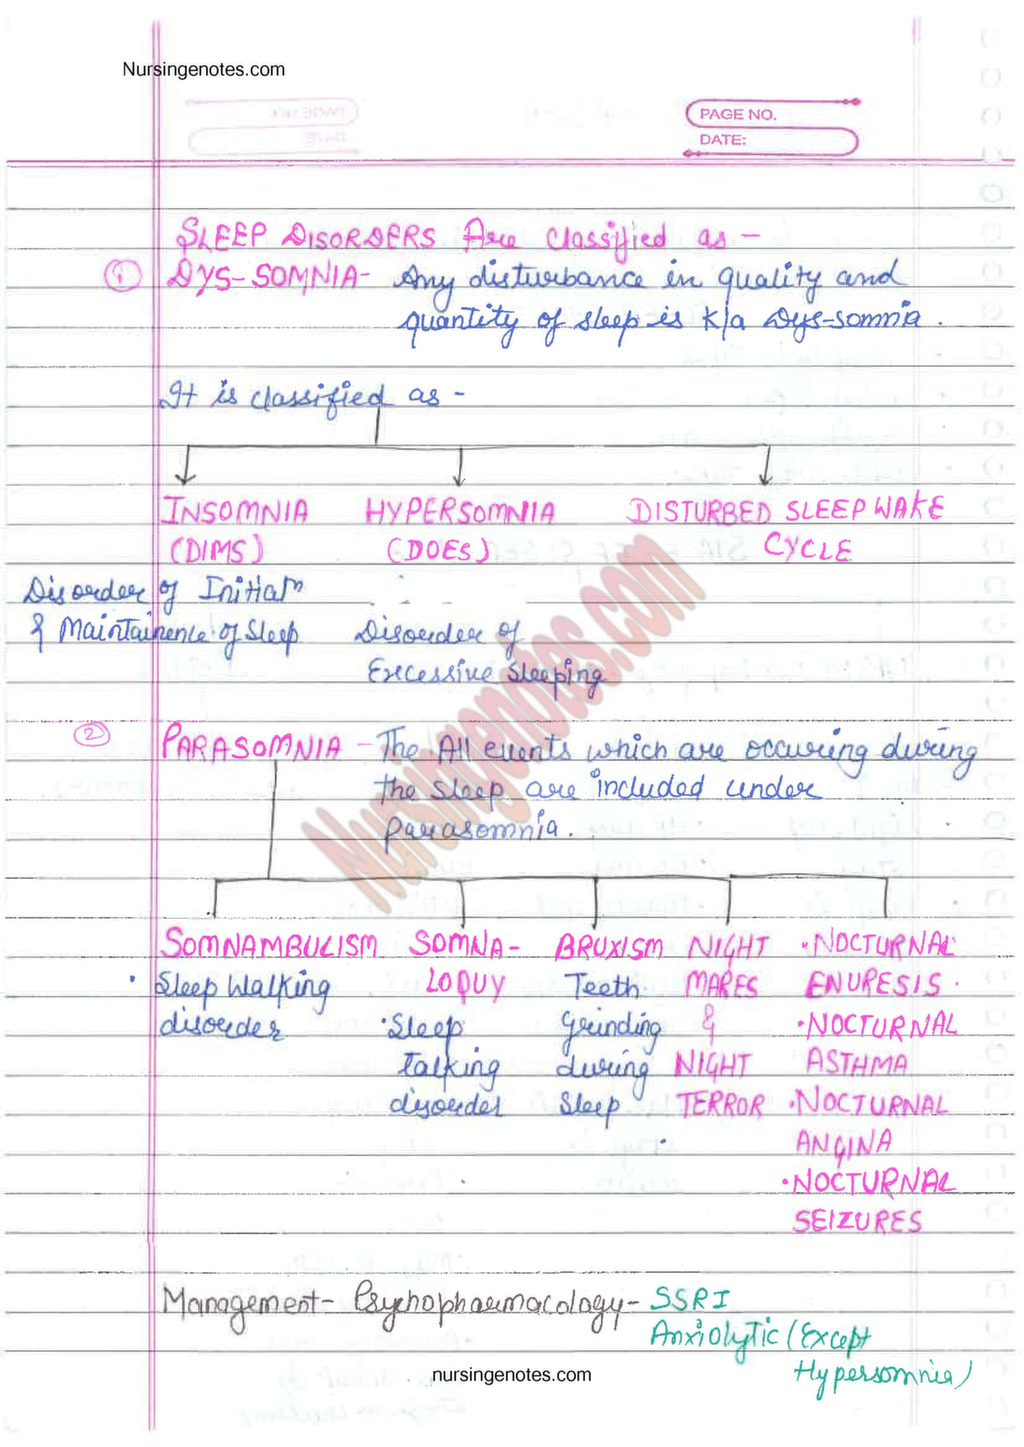 Nursingenotes.com
PAGE NO.
DATE:
SLEEP DISORDERS Are classified as -
① DYS-SOMNIA- Any disturbance in quality and
quantity of sleep is K/a Dys-somnia.
It is classified as -
INSOMNIA HYPERSOMNIA DISTURBED SLEEP WAKE
(DIMS) (DOES) CYCLE
Disorder of Initiatn
& Maintainence of Sleep Disorder of
Excessive Sleeping
② PARASOMNIA - The All events which are occuring during
the sleep are included under
parasomnia.
SOMNAMBULISM SOMNA- BRUXISM NIGHT • NOCTURNAL
• Sleep Walking LOQUY Teeth MARES ENURESIS.
disorder • Sleep Grinding & • NOCTURNAL
talking during NIGHT ASTHMA
disorder Sleep TERROR • NOCTURNAL
ANGINA
• NOCTURNAL
SEIZURES
Management - Psychopharmacology - SSRI
Anxiolytic (Except
Hypersomnia)
nursingenotes.com
Nursingenotes.com